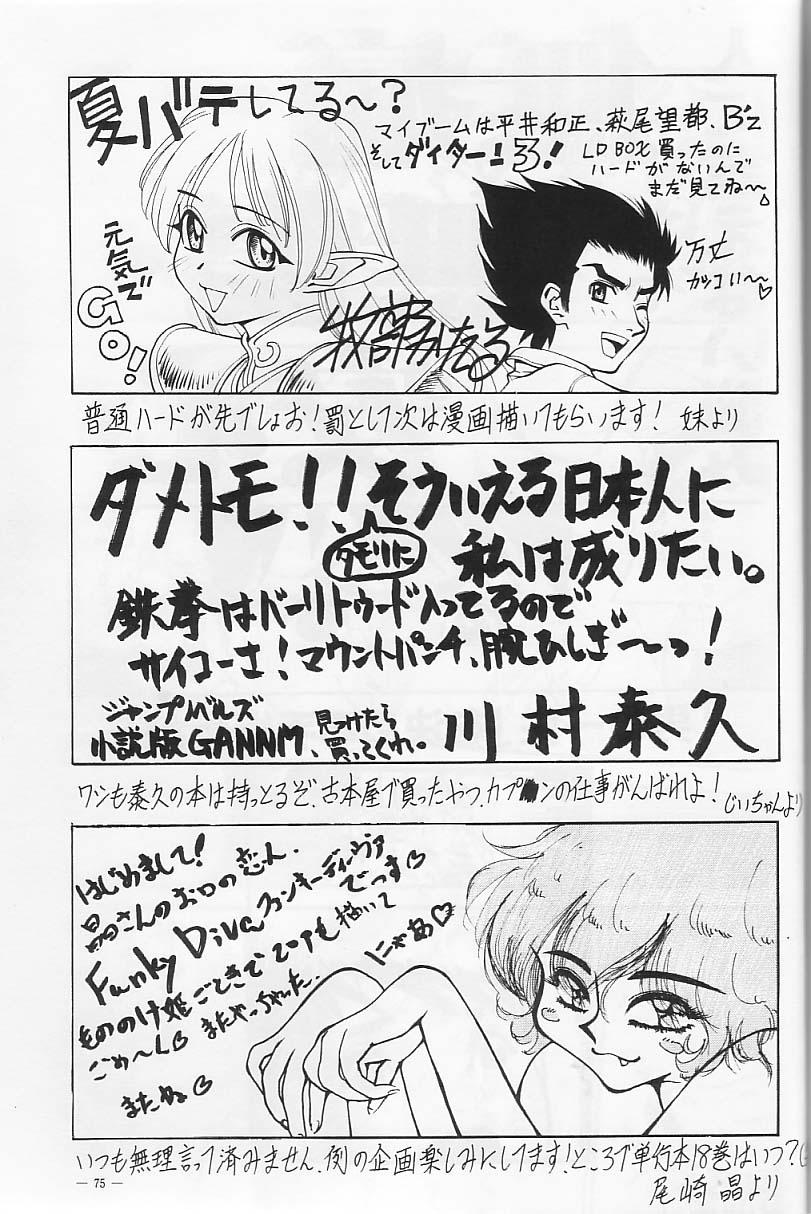 夏バテしてる〜?
マイブームは平井和正、萩尾望都、B'z
そしてダイターン3!
LD BOX 買ったのに
ハードがないんで
まだ見てね〜
元気で
GO!
万丈
カッコい〜♡
普通ハードが先でしょお!罰として次は漫画描いてもらいます! 妹より
ダメトモ!!そういえる日本人に
タモリに
私は成りたい。
鉄拳はバーリトゥード入ってるので
サイコーさ!マウントパンチ、腕ひしぎ〜っ!
ジャンプノベルズ
小説版GANNM、見つけたら
買ってくれ。
川村泰久
ワシも泰久の本は持っとるぞ、古本屋で買ったやつ、カプンの仕事がんばれよ! じいちゃんより
はじめまして!
晶さんのお口の恋人、
Funky Divaファンキーディヴァ
でっす♡
もののけ姫ごときで
描いて
またやっちゃった。
ごめ〜ん♡
にゃあ♡
またね♡
いつも無理言って済みません、例の企画楽しみにしてます!ところで単行本18巻はいつ?
尾崎 晶より
— 75 —